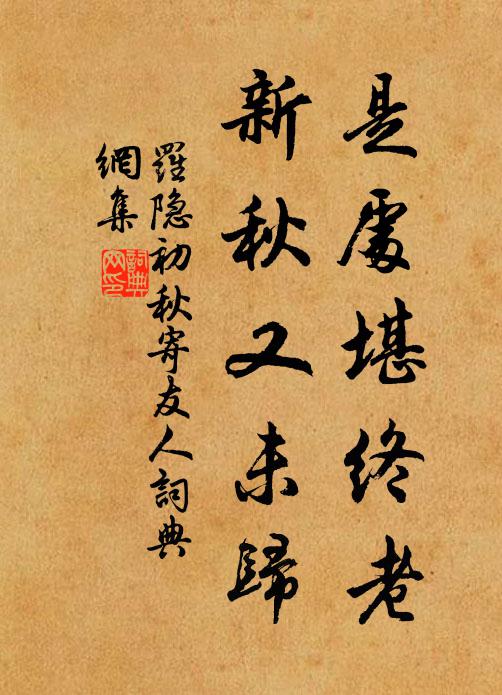 是處堪終老
新秋又未歸
羅隐初秋寄友人詞典
網集
詞典网印